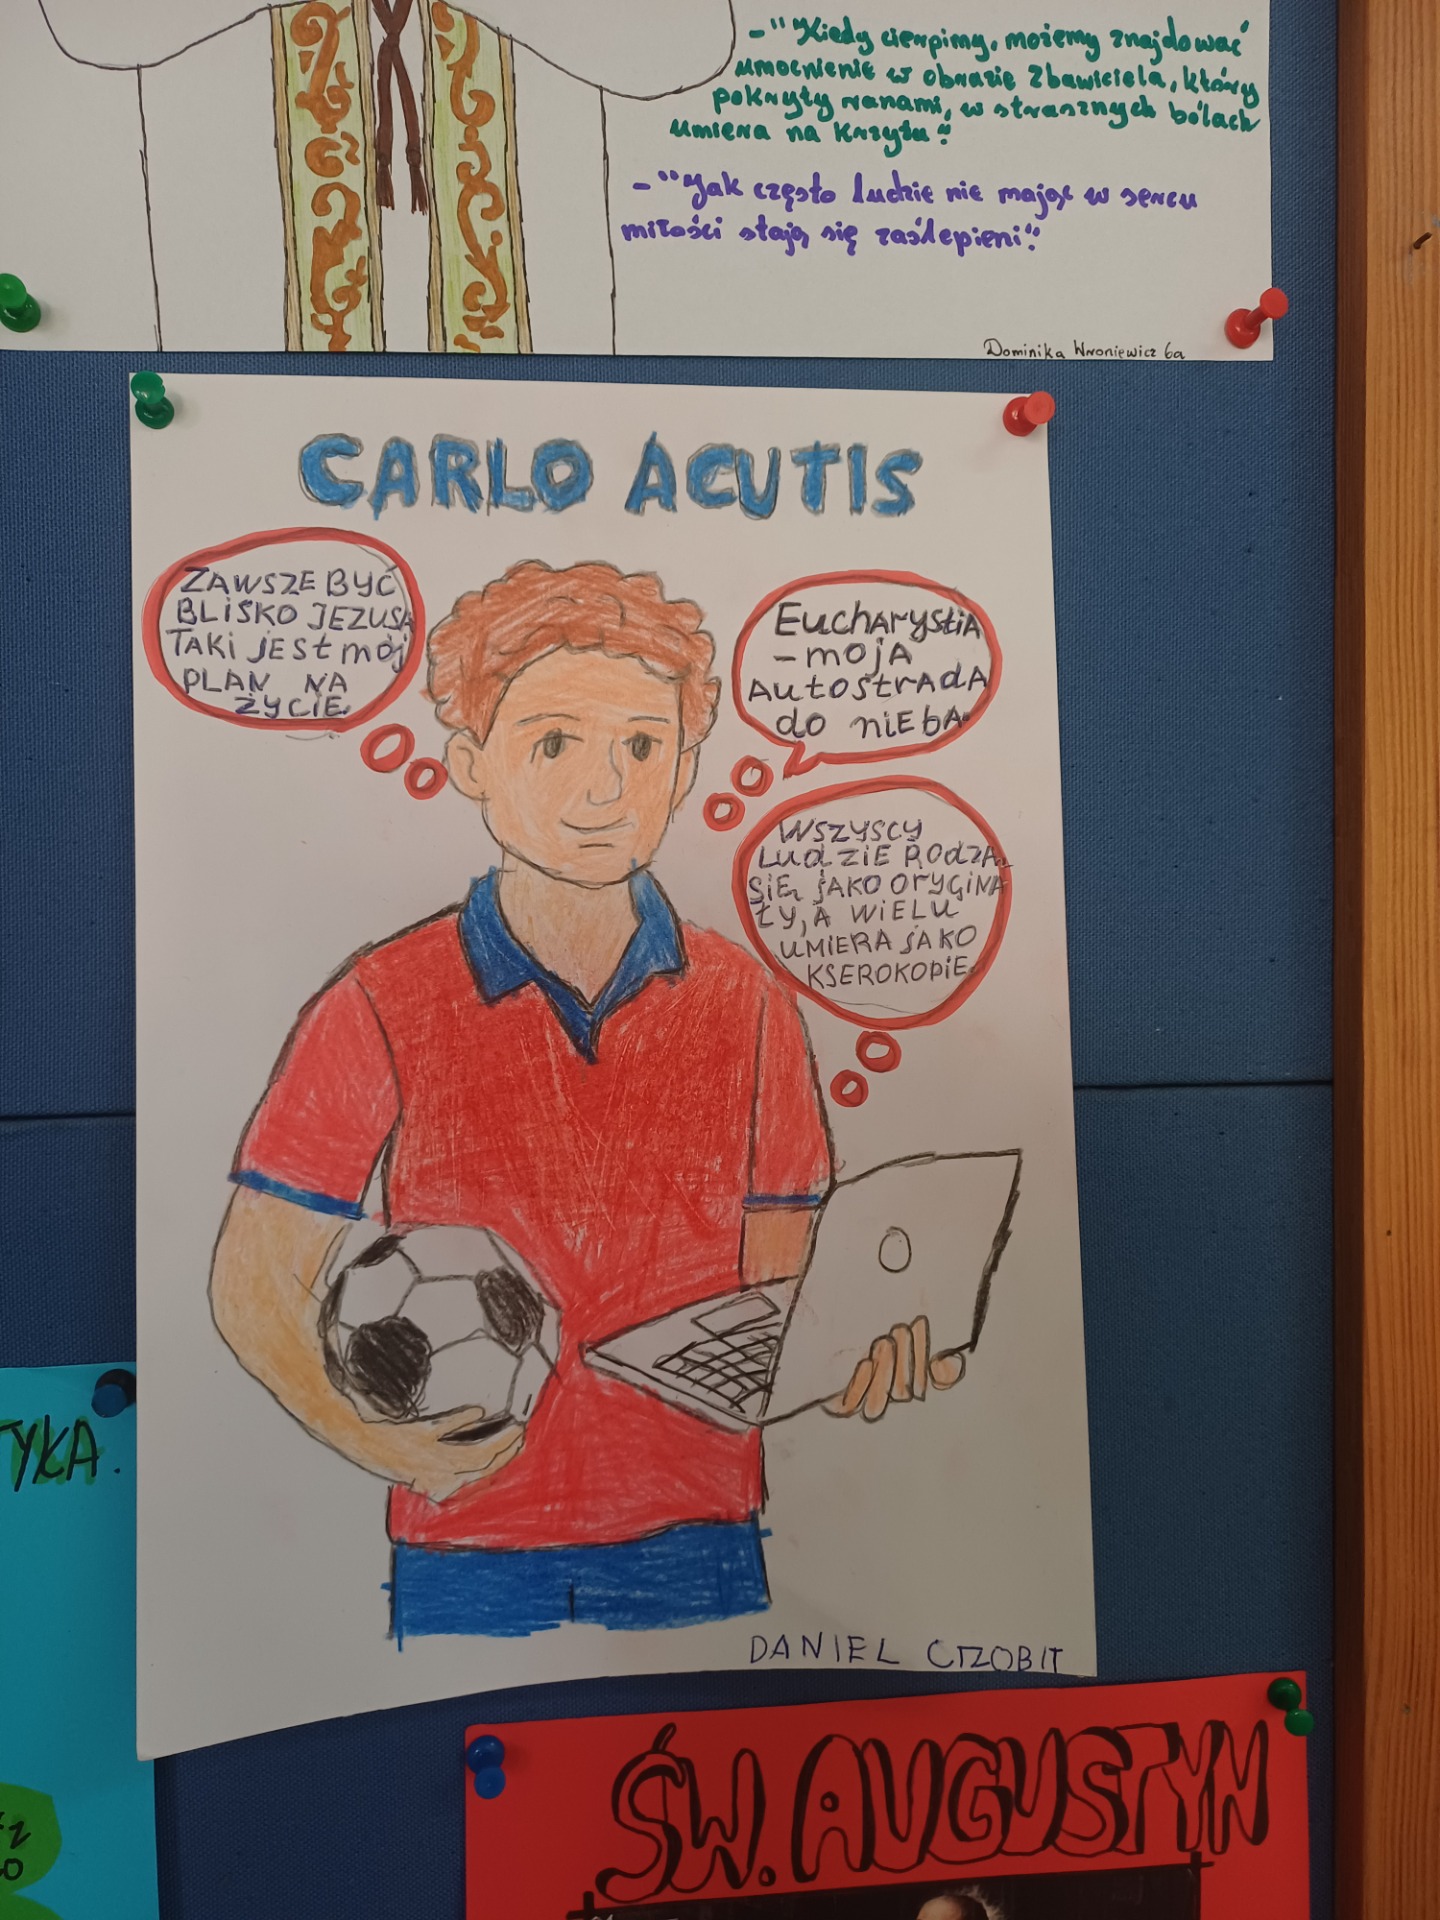 -"Kiedy cierpimy, możemy znajdować
umocnienie w obrazie Zbawiciela, który
pokryty ranami, w strasznych bólach
umiera na krzyżu".
-"Jak często ludzie nie mając w sercu
miłości stają się zaślepieni".
Dominika Wroniewicz 6a
CARLO ACUTIS
ZAWSZE BYĆ
BLISKO JEZUSA
TAKI JEST mój
PLAN NA
ŻYCIE.
EuchARystiA
- mojA
AutostradA
do niebA.
WSZYSCY
LudZIE RODZĄ
SIĘ JAKO ORYGINA
ŁY, A WIELU
UMIERA JAKO
KSEROKOPIE.
DANIEL CZOBIT
TYKA.
ŚW. AUGUSTYN